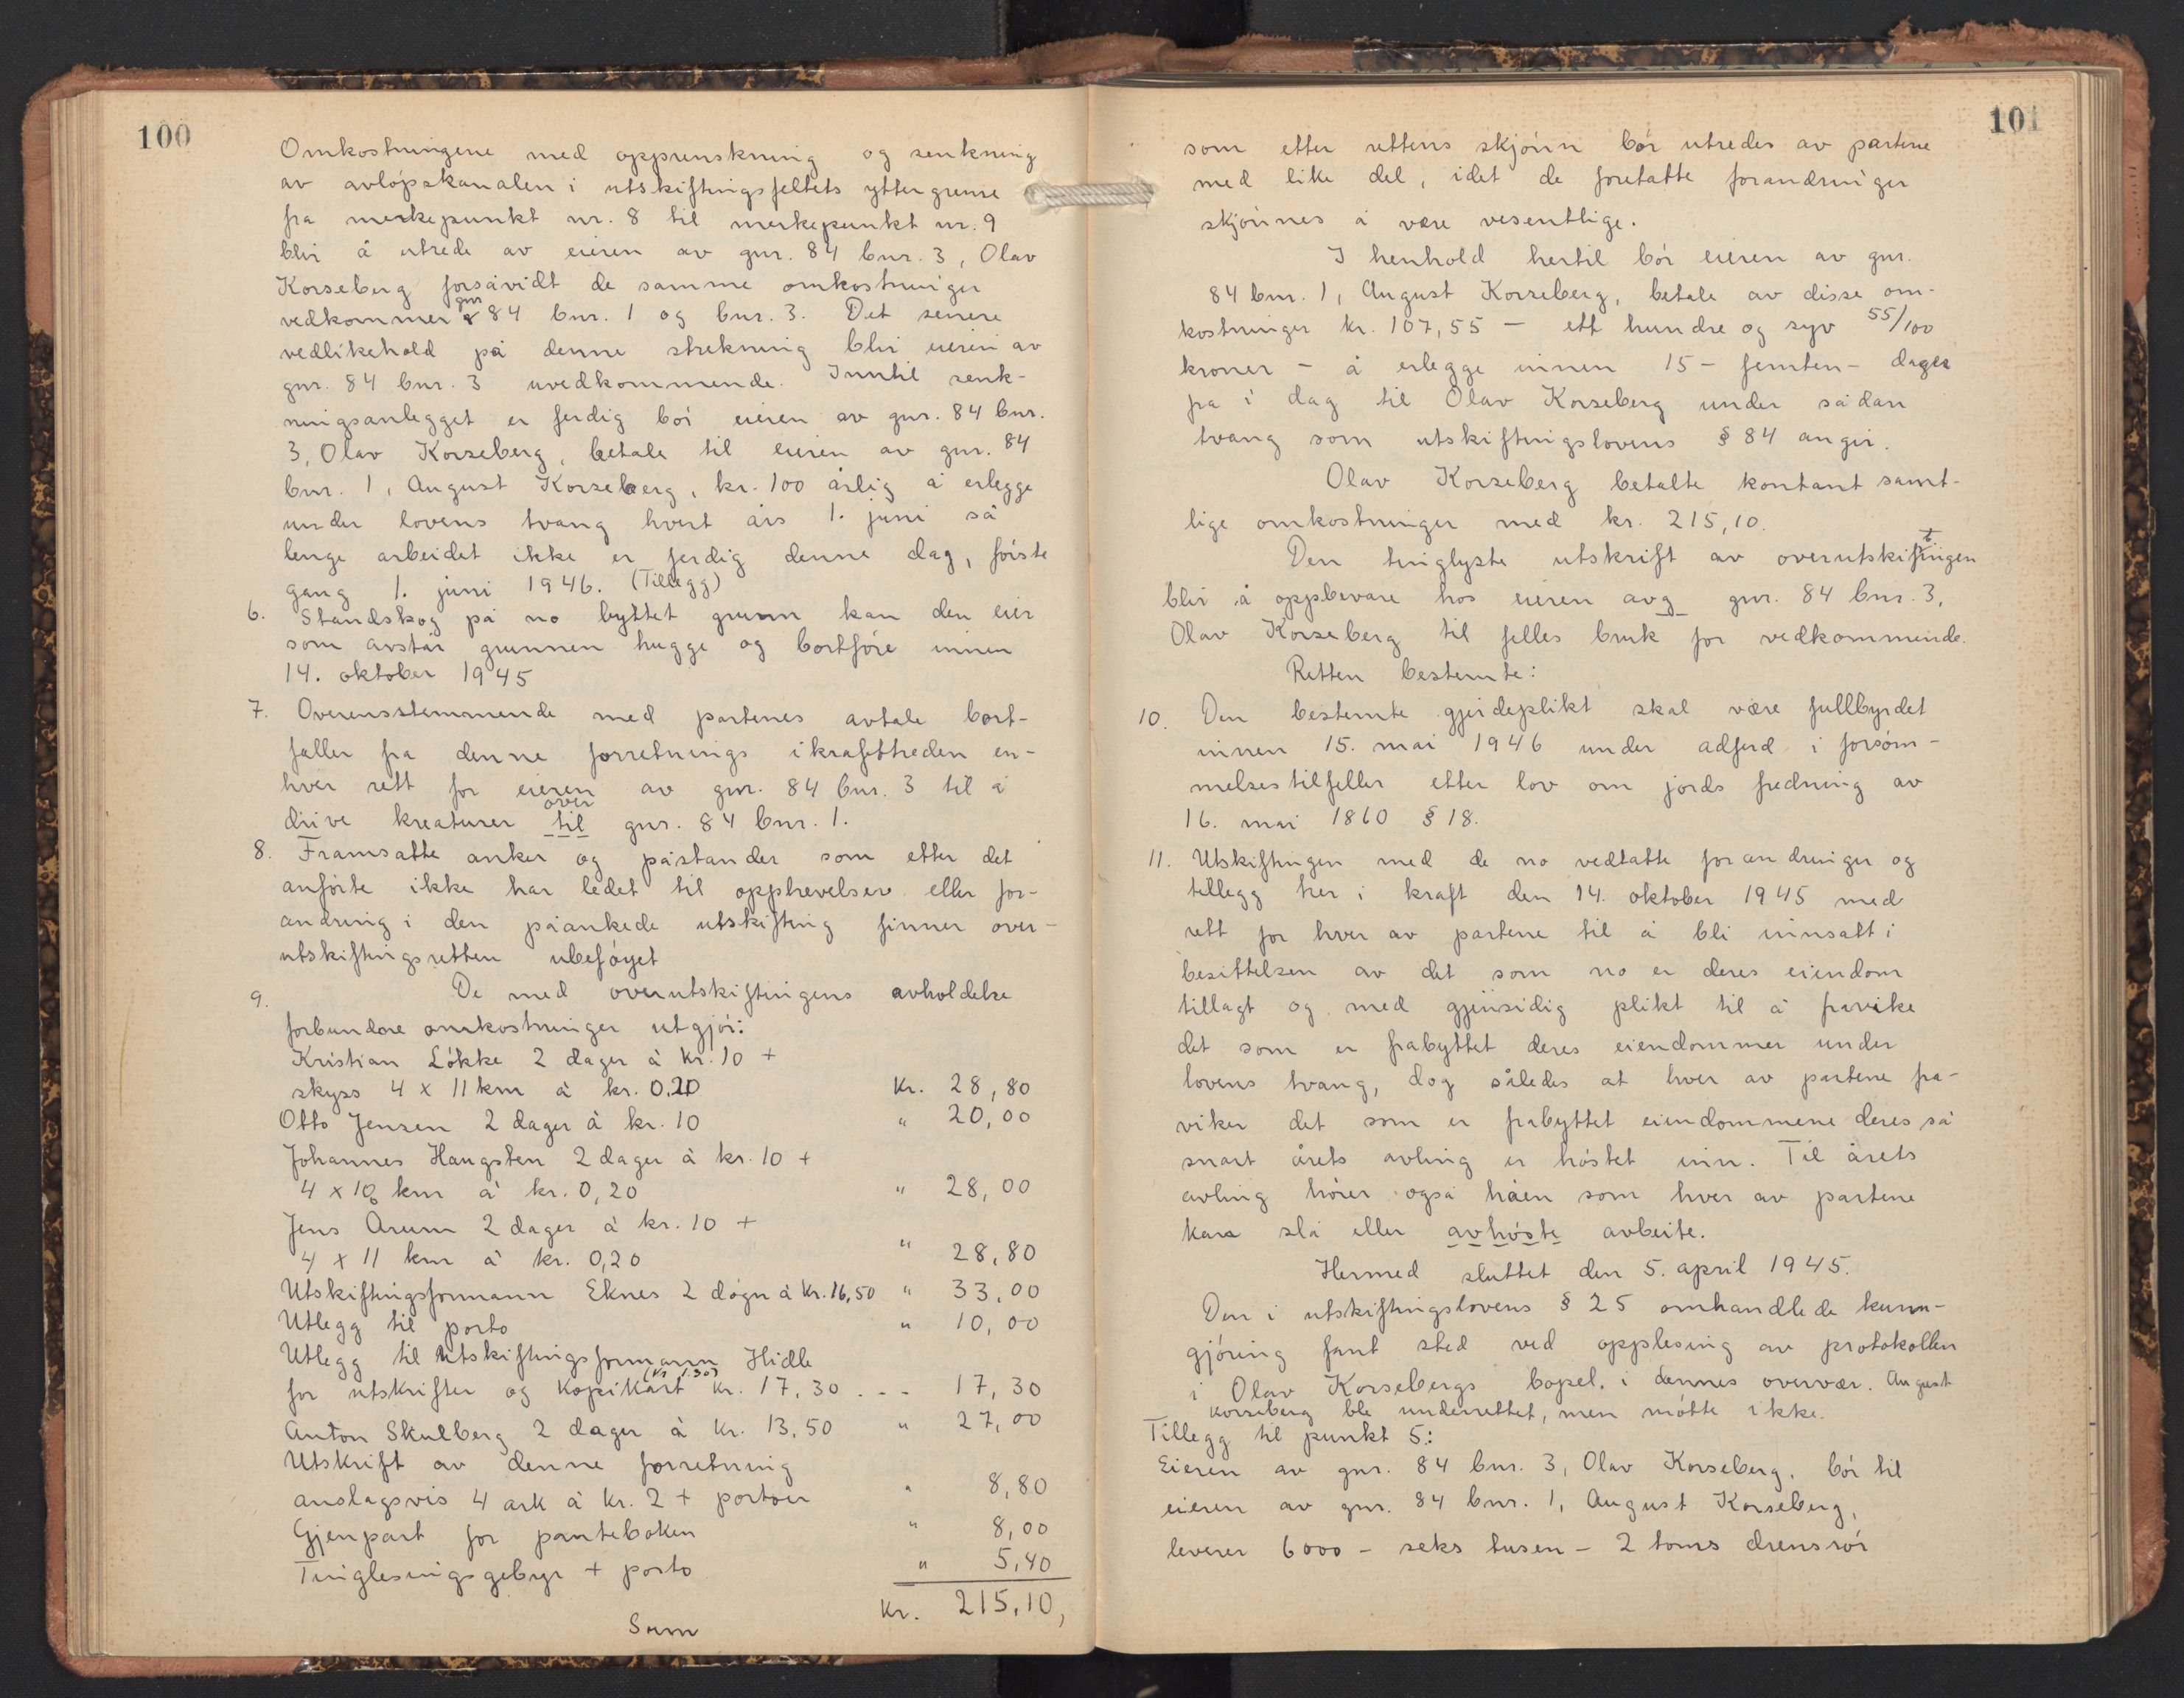 100
Omkostningene med opprenskning og senkning
av avløpskanalen i utskiftningsfeltets yttergrense
fra merkepunkt nr. 8 til merkepunkt nr. 9
blir å utrede av eieren av gnr. 84 bnr. 3, Olav
Korseberg forsåvidt de samme omkostninger
vedkommer gnr 84 bnr. 1 og bnr. 3. Det senere
vedlikehold på denne strekning blir eieren av
gnr. 84 bnr. 3 uvedkommende. Inntil senk-
ningsanlegget er ferdig bør eieren av gnr. 84 bnr.
3, Olav Korseberg, betale til eieren av gnr. 84
bnr. 1, August Korseberg, kr. 100 årlig å erlegge
under lovens tvang hvert års 1. juni så
lenge arbeidet ikke er ferdig denne dag, første
gang 1. juni 1946. (Tillegg)
6. Standskog på no byttet grunn kan den eier
som avstår grunnen hugge og bortføre innen
14. oktober 1945
7. Overensstemmende med partenes avtale bort-
faller fra denne forretnings ikrafttreden en-
hver rett for eieren av gnr. 84 bnr. 3 til å
over
drive kreaturer til gnr. 84 bnr. 1.
8. Framsatte anker og påstander som etter det
anførte ikke har ledet til opphevelser eller for-
andring i den påankede utskiftning finner over-
utskiftningsretten ubeføyet
9. De med overutskiftningens avholdelse
forbundne omkostninger utgjør:
Kristian Løkke 2 dager à kr. 10 +
skyss 4 x 11 km à kr. 0,20 kr. 28,80
Otto Jensen 2 dager à kr. 10 " 20,00
Johannes Haugsten 2 dager à kr. 10 +
4 x 10 km à kr. 0,20 " 28,00
Jens Arum 2 dager à kr. 10 +
4 x 11 km à kr. 0,20 " 28,80
Utskiftningsformann Eknes 2 døgn à kr. 16,50 " 33,00
Utlegg til porto " 10,00
Utlegg til utskiftningsformann Hidle
(kr 1.30)
for utskrifter og kopikart kr. 17,30 . - - 17,30
Anton Skulberg 2 dager à kr. 13,50 " 27,00
Utskrift av denne forretning
anslagsvis 4 ark à kr. 2 + portoer " 8,80
Gjenpart for panteboken " 8,00
Tinglesningsgebyr + porto " 5,40
Sum kr. 215,10,
101
som etter rettens skjønn bør utredes av partene
med like del, idet de foretatte forandringer
skjønnes å være vesentlige.
I henhold hertil bør eieren av gnr.
84 bnr. 1, August Korseberg, betale av disse om-
kostninger kr. 107,55 — ett hundre og syv 55/100
kroner - å erlegge innen 15 - femten - dager
fra i dag til Olav Korseberg under sådan
tvang som utskiftningslovens § 84 angir.
Olav Korseberg betalte kontant samt-
lige omkostninger med kr. 215,10.
Den tinglyste utskrift av overutskiftningen
blir å oppbevare hos eieren av g gnr. 84 bnr. 3,
Olav Korseberg til felles bruk for vedkommende.
Retten bestemte:
10. Den bestemte gjerdeplikt skal være fullbyrdet
innen 15. mai 1946 under adferd i forsøm-
melsestilfeller etter lov om jords fredning av
16. mai 1860 § 18.
11. Utskiftningen med de no vedtatte forandringer og
tillegg trer i kraft den 14. oktober 1945 med
rett for hver av partene til å bli innsatt i
besittelsen av det som no er deres eiendom
tillagt og med gjensidig plikt til å fravike
det som er frabyttet deres eiendommer under
lovens tvang, dog således at hver av partene fra-
viker det som er frabyttet eiendommene deres så
snart årets avling er høstet inn. Til årets
avling hører også håen som hver av partene
kan slå eller avhøste avbeite.
Hermed sluttet den 5. april 1945.
Den i utskiftningslovens § 25 omhandlede kunn-
gjøring fant sted ved opplesing av protokollen
i Olav Korsebergs bopel. i dennes overvær. August
Korseberg ble underrettet, men møtte ikke.
Tillegg til punkt 5.:
Eieren av gnr. 84 bnr. 3, Olav Korseberg. bør til
eieren av gnr. 84 bnr. 1, August Korseberg,
leverer 6000 - seks tusen - 2 toms drensrør